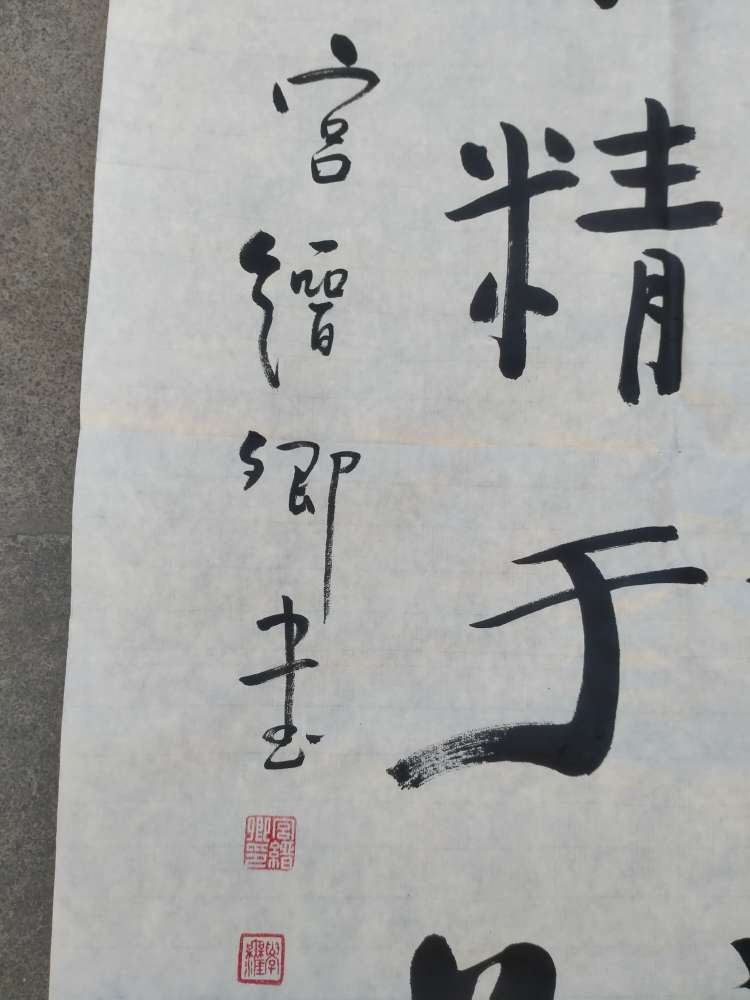 精于
宫缙卿书
宮縉卿印